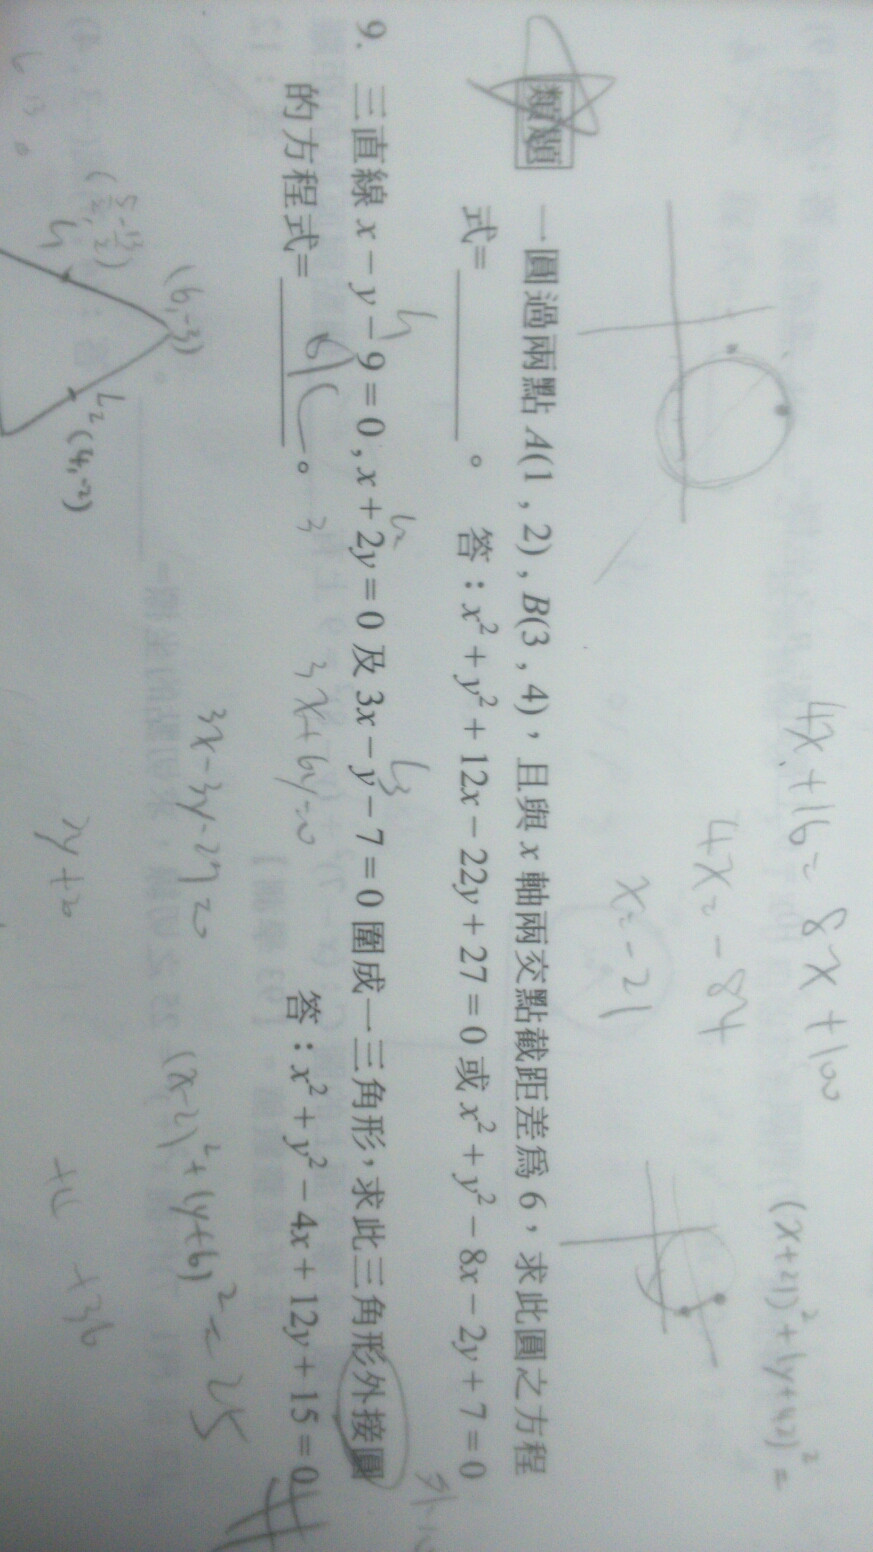 4x+16=8x+100
(x+21)²+(y+42)²=
4x=-84
x=-21
類題 一圓過兩點 A(1 , 2) , B(3 , 4),且與 x 軸兩交點截距差為 6,求此圓之方程
式= 。 答:x²+y²+12x−22y+27=0 或 x²+y²−8x−2y+7=0
L₁ L₂ L₃
9. 三直線 x−y−9=0 , x+2y=0 及 3x−y−7=0 圍成一三角形,求此三角形外接圓
的方程式= 。 答:x²+y²−4x+12y+15=0
3 3x+6y=0
3x-3y-27=0
(x-2)²+(y+6)²=25
(6,-3)
L₁ L₂ (4,-2)
+36